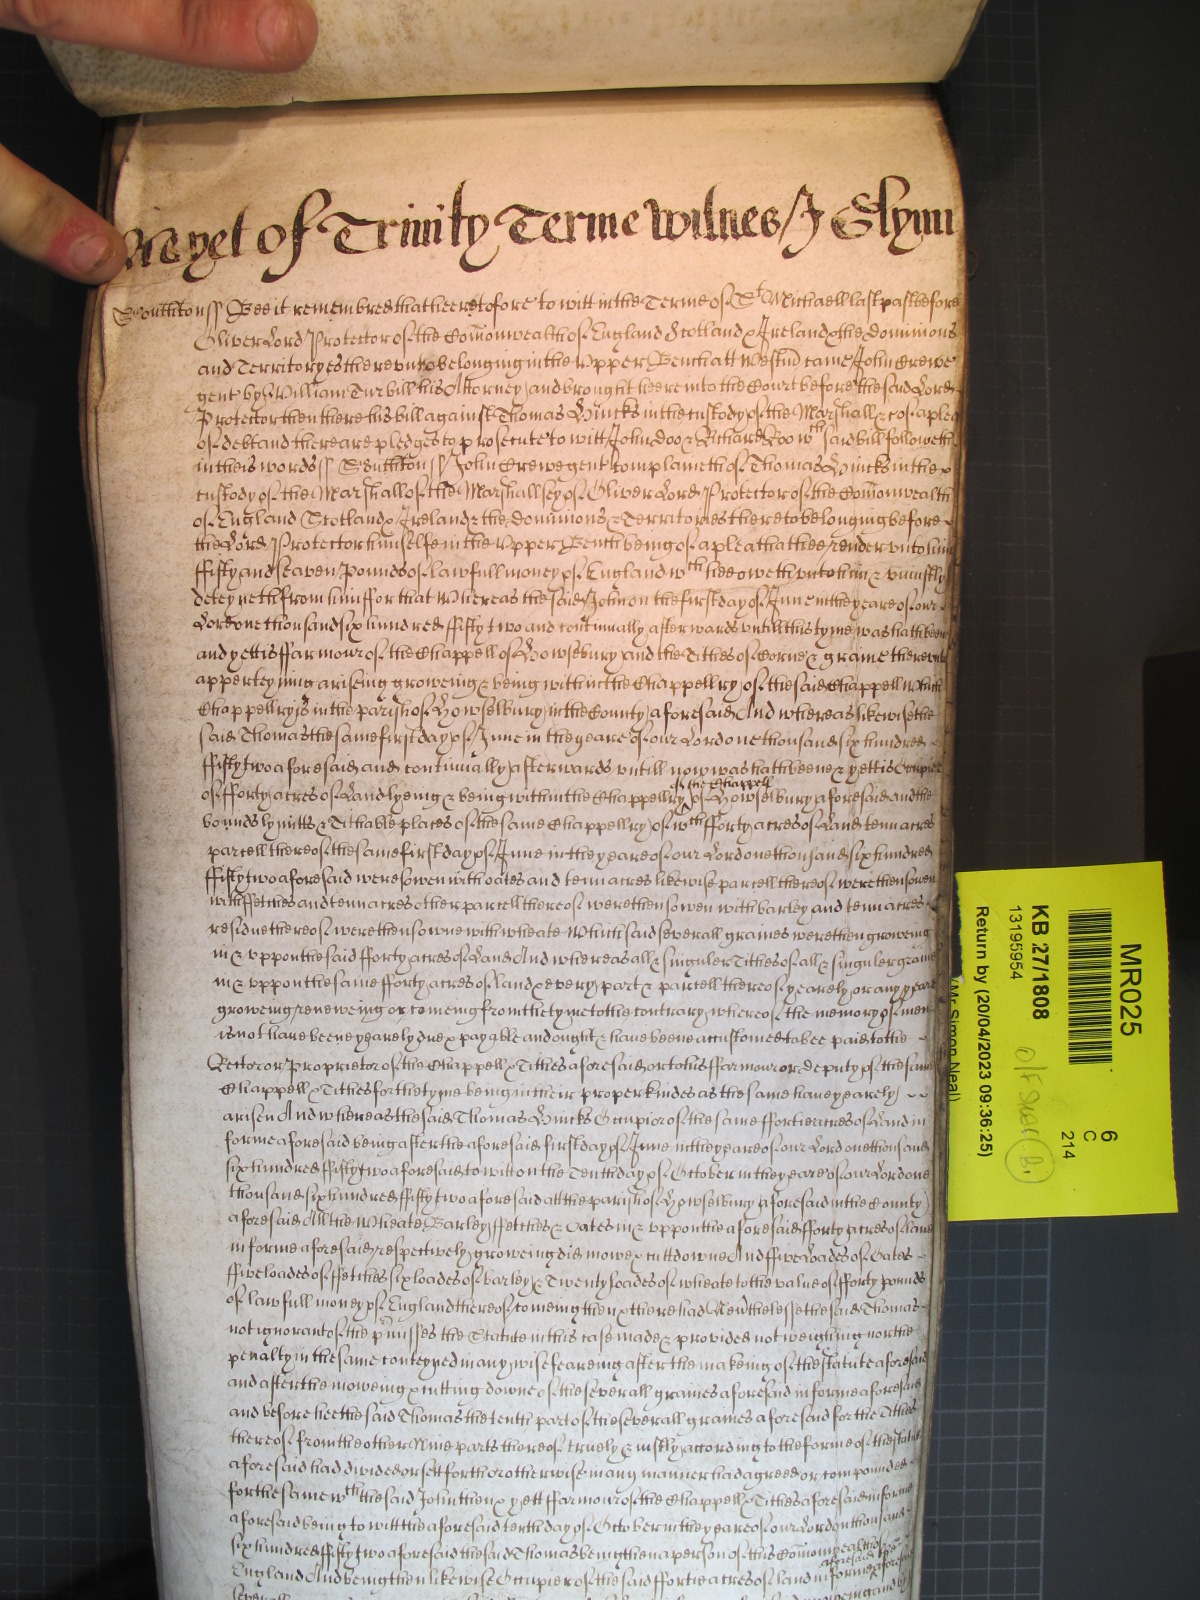 As yet of Trinity Terme Witnes J Glynn
Southtonss Bee it remembred that heeretofore to witt in the Terme of St Michaell last past before
Oliver Lord Protector of the Comonwealth of England Scotland & Ireland & the dominions
and Territoryes thereunto belonging in the Upper Bench att Westmr came John Crewe
gent by William Turbill his Attorney and brought heere into the Court before the said Lord
Protector then there his bill against Thomas Hincks in the custody of the Marshall &c of a plea
of debt and there are pledges to prosecute to witt John doo & Richard Roo wch said bill followeth
in theis words ss Southtonss John Crewe gent complaineth of Thomas Hincks in the
custody of the Marshall of the Marshallsey of Oliver Lord Protector of the Comonwealth
of England Scotland & Ireland & the dominions & Territories thereto belonging before
the Lord Protector himselfe in the Upper Bench being of a plea that hee render unto him
ffifty and seaven Pounds of lawfull money of England wch hee oweth unto him & uniustly
deteyneth from him for that Whereas the said John on the first day of June in the yeare of our
Lord one thousand six hundred ffifty two and continually afterwards untill this tyme was hath been
and yett is ffarmour of the Chappell of Howselbury and the Tithes of Corne & graine thereunto
apperteyning ariseing groweing & being within the Chappellry of the said Chappell Which
Chappellry is in the parish of Howselbury in the County aforesaid And whereas likewise the
said Thomas the same first day of June in the yeare of our Lord one thousand six hundred
ffifty two aforesaid and continually afterwards untill now was hath beene & yett is Occupier
of the Chappell
of fforty acres of Land lyeing & being within the Chappellry of Howselbury aforesaid and the
bounds lymitts & Tithable places of the same Chappellry of wch fforty acres of Land tenn acres
parcell thereof the same first day of June in the yeare of our Lord one thousand six hundred
ffifty two aforesaid were sowen with oates and tenn acres likewise parcell thereof were then sowen
with ffetches and tenn acres other parcell thereof were then sowen with barley and tenn acres
residue thereof were then sowne with wheate Which said severall graines were then groweing
in & uppon the said fforty acres of Land And whereas all & singuler Tithes of all & singuler graine
in & uppon the same fforty acres of Land & every part & parcell thereof yearely or any yeare
groweing reneweing or comeing from the tyme to the contrary whereof the memory of men
is not have beene yearely due & payable and ought & have beene accustomed to bee paid to the
Rector or Proprietor of the Chappell & Tithes aforesaid or to his ffarmour or deputy of the same
Chappell & Tithes for the tyme being in their proper kindes as the same have yearely
arisen And whereas the said Thomas Hincks Occupior of the same ffortie acres of Land in
forme aforesaid being after the aforesaid first day of June in the yeare of our Lord one thousand
six hundred ffifty two aforesaid to witt on the Tenth day of October in the yeare of our Lord one
thousand six hundred ffifty two aforesaid att the parish of Howselbury aforesaid in the County
aforesaid All the Wheate Barley ffetches & Oates in & uppon the aforesaid fforty acres of land
in forme aforesaid respectively groweing did mowe & cutt downe And ffive Loades of Oates
ffive loades of ffetches six loades of barley & Twenty loades of wheate to the value of fforty pounds
of lawfull money of England thereof comeing then & there had Neverthelesse the said Thomas
not ignorant of the pmisses the Statute in this case made & provided not weighing nor the
penalty in the same conteyned in any wise feareing after the makeing of the statute aforesaid
and after the moweing & cutting downe of the severall graines aforesaid in forme aforesaid
and before hee the said Thomas the tenth part of the severall graines aforesaid for the Tithes
thereof from the other Nine parts thereof truely & iustly according to the forme of the statute
aforesaid had divided or sett forth or otherwise in any manner had agreed or compounded
for the same wth the said John then & yett ffarmour of the Chappell & Tithes aforesaid in forme
aforesaid being to witt the aforesaid tenth day of October in the yeare of our Lord on thousand
six hundred ffifty two aforesaid the said Thomas being then a person of this Comonwealth of
England And being then likewise Occupier of the said ffortie acres of land in forme aforesaid
severall
MR025
KB 27/1808
13195954
Return by (20/04/2023 09:36:25)
(Mr Simon Neal)
6
C
214